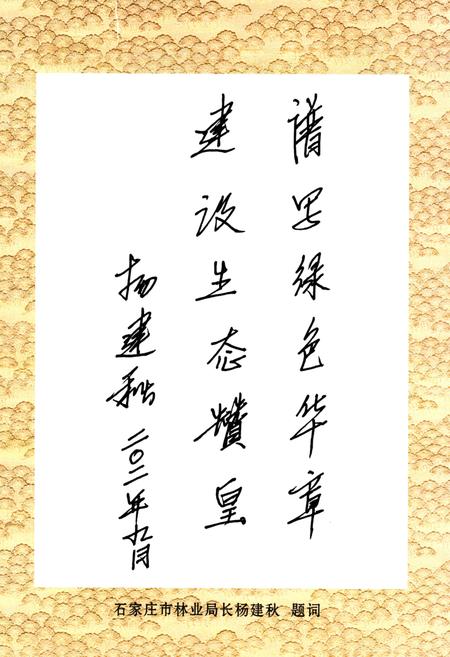 谱写绿色华章
建设生态赞皇
杨建秋 二〇一二年九月
石家庄市林业局长杨建秋 题词